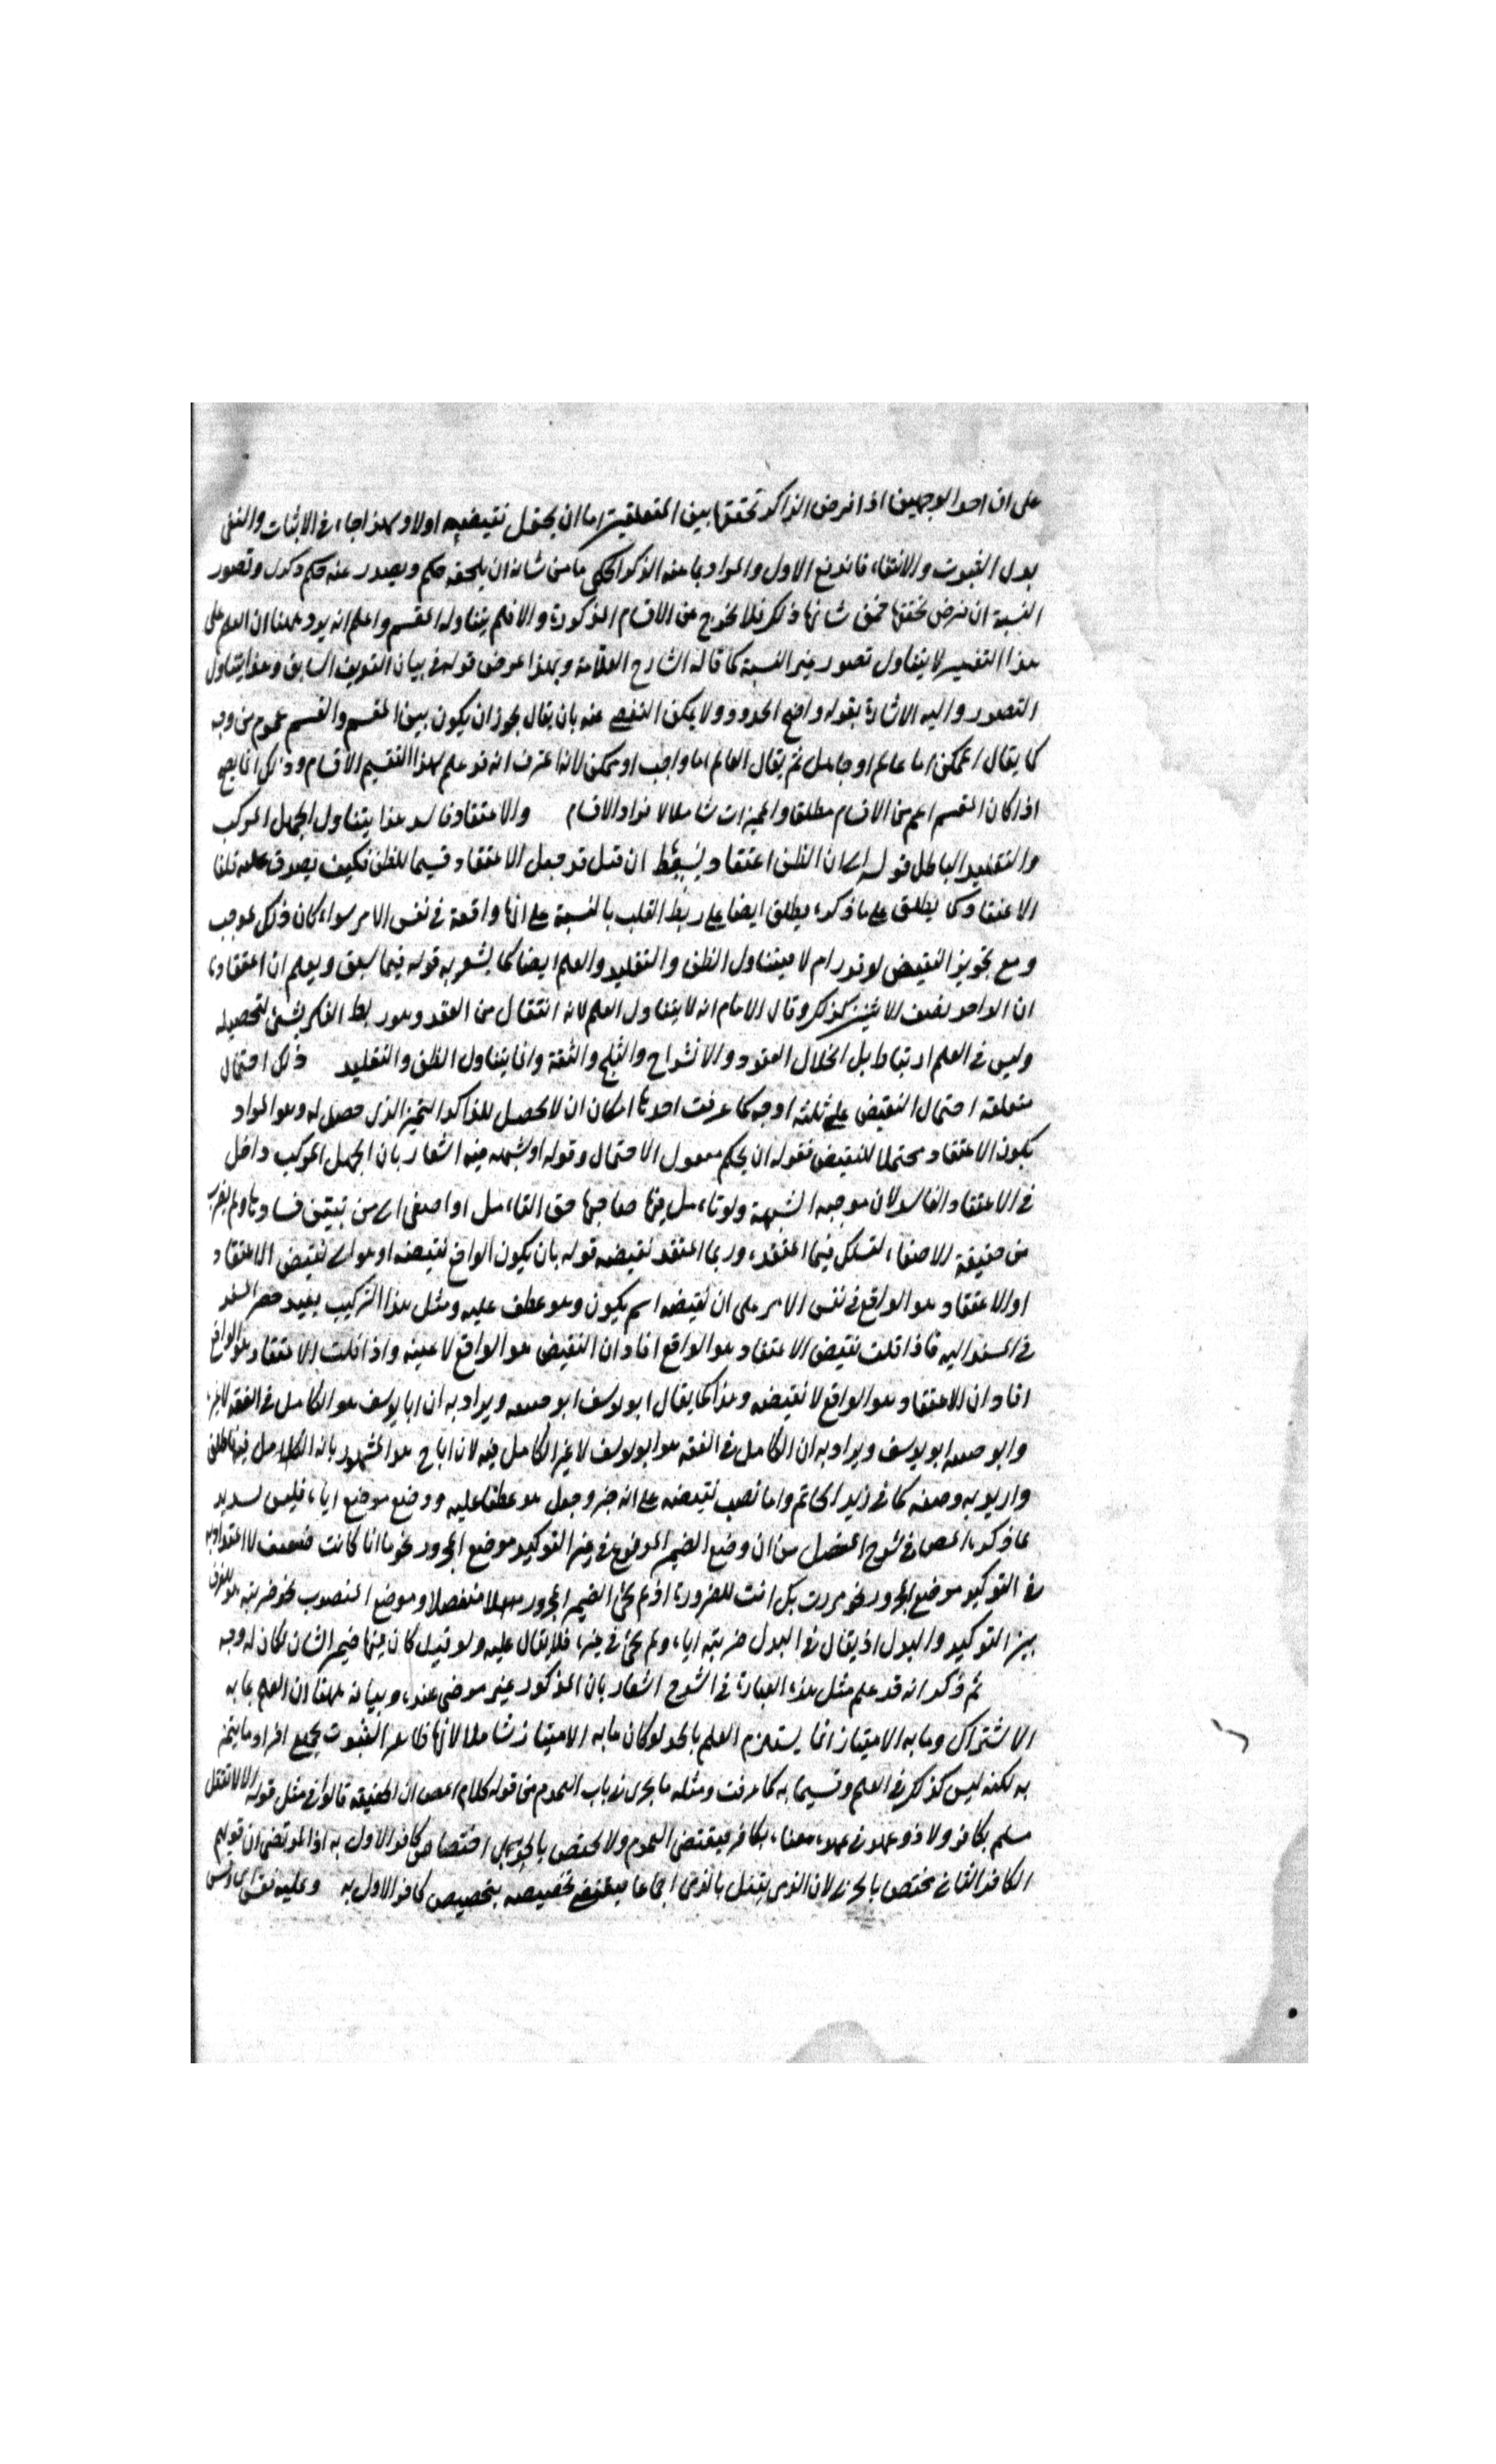 على ان احد الوجهين اذا فرض الذاكر تحققها بين المتعلقين اما ان يحتمل نقيضه اولا وبهذا جاء في الاثبات والنفى
بدل الثبوت والانتفاء فاندفع الاول والمراد بما عنه الذكر الحكمى ما من شانه ان يلحقه حكم ويصدر عنه حكم وكذلك وتصور
النسبة ان فرض تحققها فمن شانها ذلك فلا يخرج عن الاقسام المذكورة والا فلم يتناوله المقسم واعلم انه يرد ههنا ان العلم على
هذا التفسير لا يتناول تصور غير النسبة كما قاله الشارح العلامة وبهذا عرض قوله في بيان التعريف السابق وهذا يتناول
التصور واليه الاشارة بقوله واضح الحدود ولا يمكن التفصى عنه بان يقال يجوز ان يكون بين المقسم والقسم عموم من وجه
كما يقال الممكن اما عالم او جاهل ثم يقال العالم اما واجب او ممكن لانه اعترف انه قد علم بهذا التقسيم الاقسام وذلك انما يصح
اذا كان المقسم اعم من الاقسام مطلقا والمميزات شاملا لافراد الاقسام والاعتقاد فاسد هذا يتناول الجهل المركب
والتقليد الباطل قوله اى ان الظن اعتقاد بسيط ان قيل قد جعل الاعتقاد قسيما للظن فكيف يصدق عليه قلنا
الاعتقاد كما يطلق على ما ذكره يطلق ايضا على ربط القلب بالنسبة على انها واقعة في نفس الامر سواء كان ذلك لموجب
ومع تجويز النقيض لو قدر ام لا فيتناول الظن والتقليد والعلم ايضا كما يشعر به قوله فيما سبق ويعلم ان اعتقادنا
ان الواحد نصف الاثنين كذلك وقال الامام انه لا يتناول العلم لانه انتقال من العقد وهو ربط الفكر بشئ لتحصيله
وليس في العلم ارتباط بل انحلال العقود والانشراح والثلج والثقة وانما يتناول الظن والتقليد ذلك احتمال
متعلقه احتمال النقيض على ثلثه اوجه كما عرفت احدها امكان ان لا يحصل للذاكر التميز الذى حصل له وهو المراد
بكون الاعتقاد محتملا للنقيض فقوله ان يحكم معمول الاحتمال وقوله او لشبهه فيه اشعار بان الجهل المركب داخل
في الاعتقاد الفاسد لان موجبه الشبهة ولو تامل فيها صاحبها حق التامل او اصغى الى من تبين فسادها ولم
من حقيقة الاصغاء لتشكك فيما اعتقده وربما اعتقد نقيضه قوله بان يكون الواقع نقيضه او هو اى نقيض الاعتقاد
او الاعتقاد هو الواقع في نفس الامر على ان نقيضه اسم يكون وهو عطف عليه ومثل هذا التركيب يفيد حصر المسند
في المسند اليه فاذا قلت نقيض الاعتقاد هو الواقع افاد ان النقيض هو الواقع لا عينه واذا قلت الاعتقاد هو الواقع
افاد ان الاعتقاد هو الواقع لا نقيضه وهذا كما يقال ابو يوسف ابو حنيفه ويراد به ان ابا يوسف هو الكامل في الفقه لا غيره
وابو حنيفه ابو يوسف ويراد به ان الكامل في الفقه هو ابو يوسف لا غير الكامل فيه لان اباح هو المشهور بانه الكامل فيه فاطلق
واريد به وصفه كما في زيد الحاتم واما نصب نقيضه على انه خبر وجعل هو عطفا عليه ووضع موضع اياه فليس لسديد
لما ذكره المص في شرح المفصل من ان وضع الضمير المرفوع في غير التوكيد موضع المجرور نحو ما انا كانت ضعيف لا اعتداد به
في التوكيد موضع المجرور نحو مررت بك انت للضرورة اذ لم يجئ الضمير المجرور منفصلا وموضع المنصوب نحو ضربته هو للفرق
بين التوكيد والبدل اذ يقال في البدل ضربته اياه ولم يجئ في غيره فلا يقال عليه ولو قيل كان فيها ضمير الشان لكان له وجه
ثم ذكر انه قد علم مثل هذه العبارة في الشرح اشعار بان المذكور غير مرضى عنده وبيانه ههنا ان العلم بما به
الاشتراك وما به الامتياز انما يستلزم العلم بالحد لو كان ما به الامتياز شاملا لانها ظاهر الثبوت لجميع افراد ما يتميز
به لكنه ليس كذلك في العلم وقسيما به كما عرفت ومثله ما يجرى في باب العموم من قوله كلام المص ان الحنفيه قالوا في مثل قوله الا لا يقتل
مسلم بكافر ولا ذو عهد في عهده معناه بكافر فيقتضى العموم ولا يختص بالحربى بل اختصاص كافر الاول به اذ المرتضى ان قولهم
الكافر الثانى مختص بالحربى لان الذمى يقتل بالذمى اجماعا فيقتضى تخصيصه بتخصيص كافر الاول به وعليه نفسى